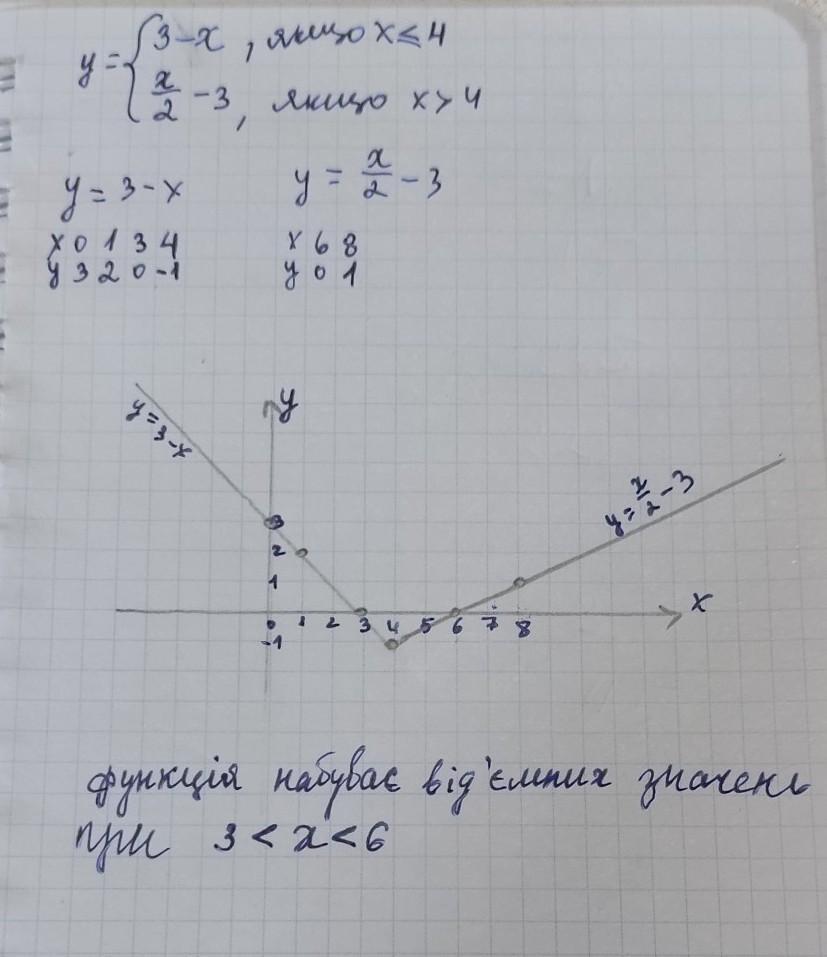 y = { 3 - x , якщо x ≤ 4
x/2 - 3, якщо x > 4
y = 3 - x
y = x/2 - 3
x 0 1 3 4
x 6 8
y 3 2 0 -1
y 0 1
y
y = 3 - x
y = x/2 - 3
3
2
1
x
0 1 2 3 4 5 6 7 8
-1
функція набуває від'ємних значень
при 3 < x < 6